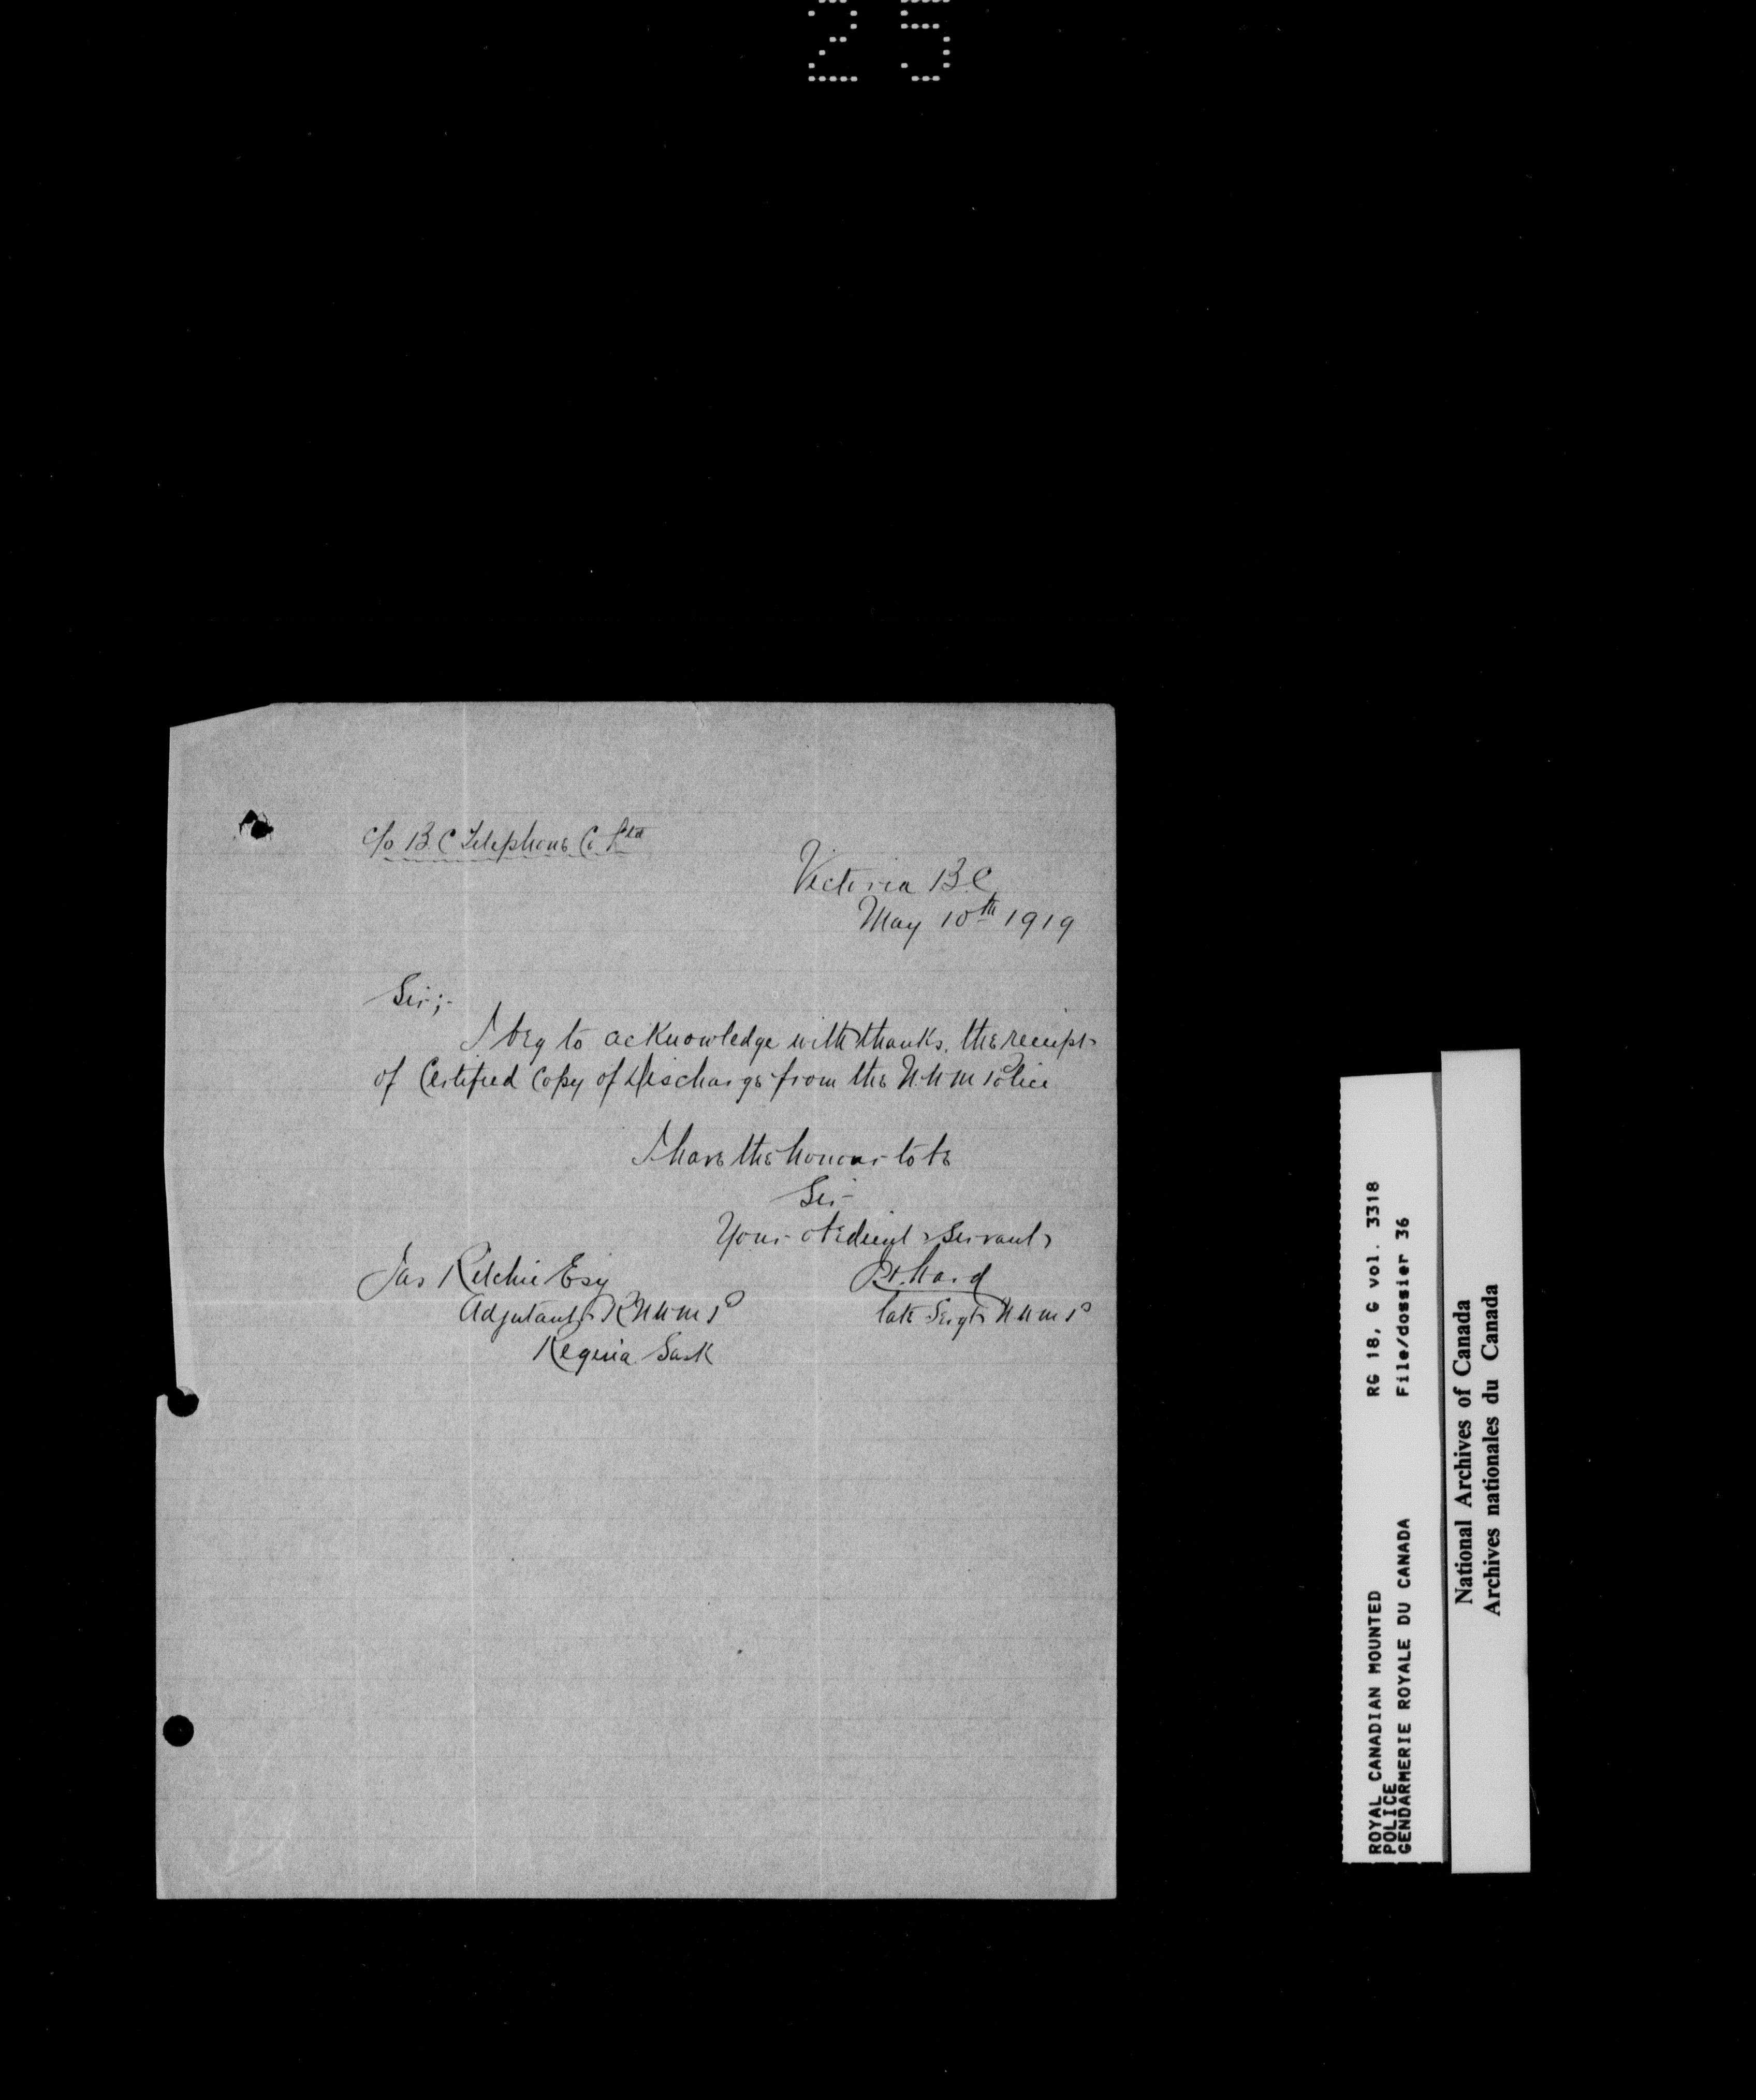 25
c/o B.C Telephone Co Ltd
Victoria B.C
May 10th 1919
Sir;-
I beg to acknowledge with thanks, the receipt
of Certified Copy of Discharge from the N.W.M Police
I have the honour to be
Sir
Your obedient Servant
Jas Ritchie Esq
Adjutant R N W M P
late Sergt N W M P
Regina Sask
RG 18, G vol. 3318
File/dossier 36
ROYAL CANADIAN MOUNTED
POLICE
GENDARMERIE ROYALE DU CANADA
National Archives of Canada
Archives nationales du Canada